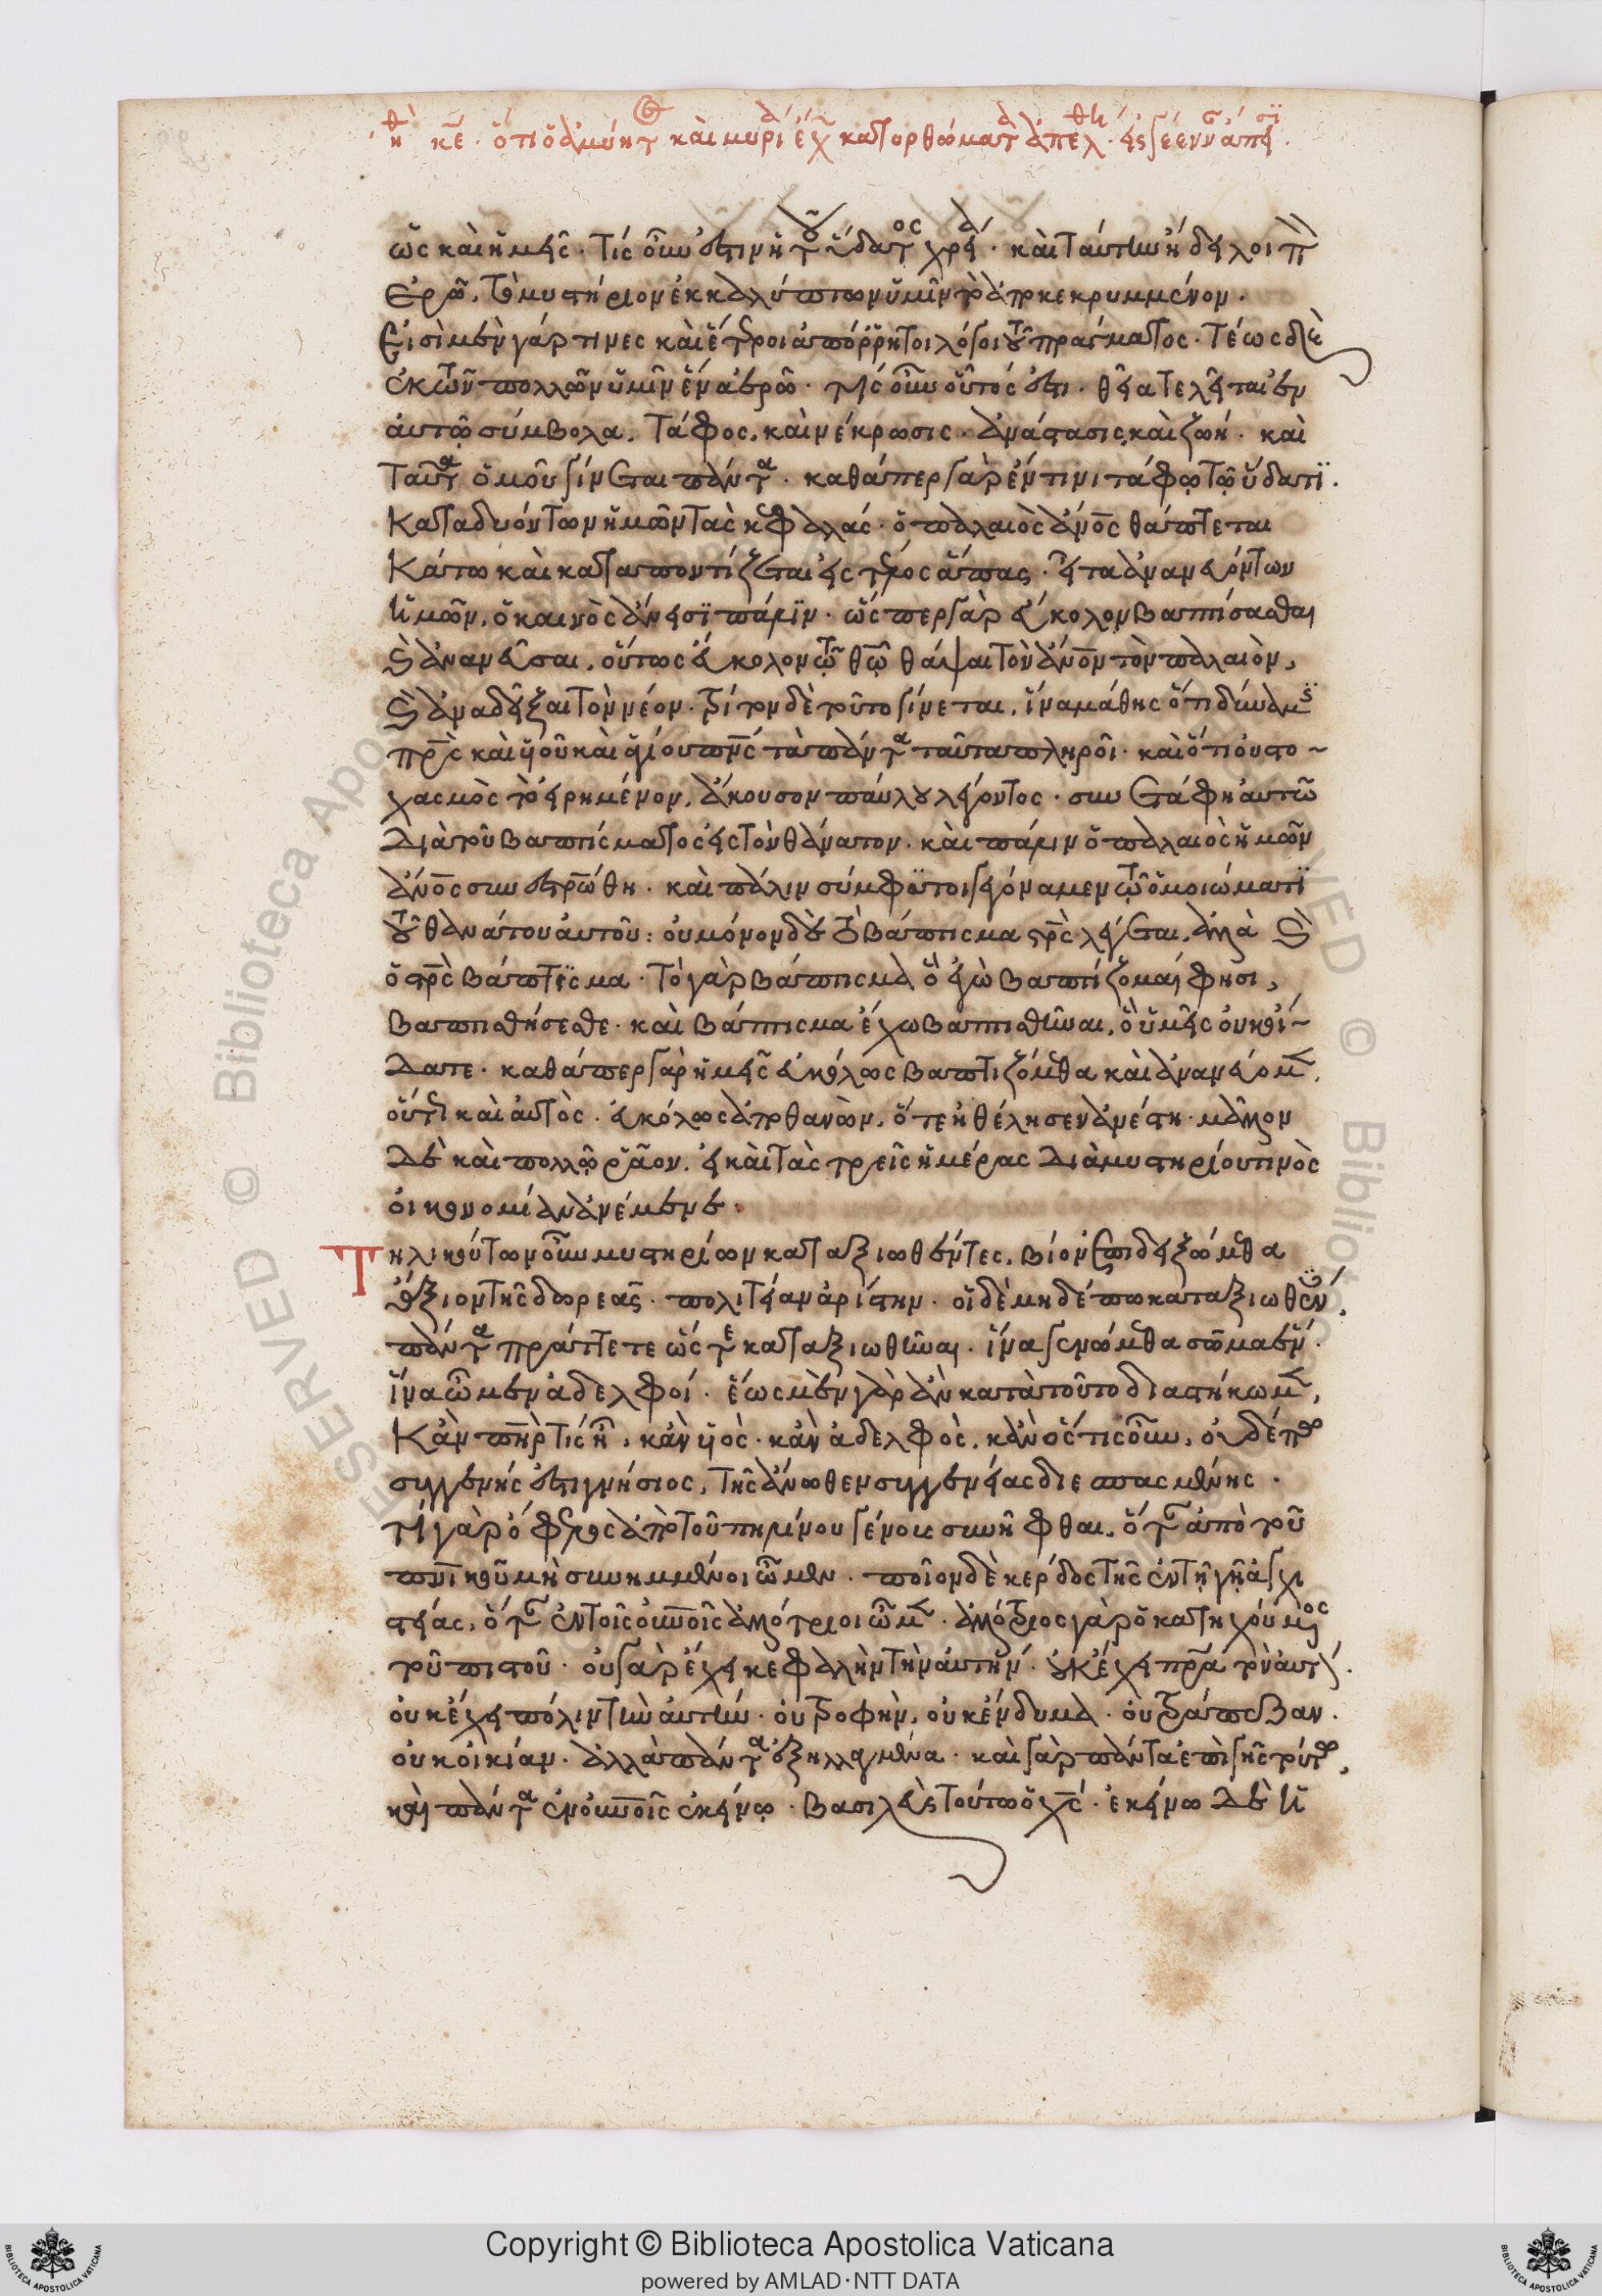 ὡς καὶ ἡμεῖς. τίς οὖν ἐστιν ἡ τοῦ ὕδατος χρεία. καὶ ταύτην ἤδη λοιπ
ἐρῶ, τὸ μυστήριον ἐκκαλύπτων ὑμῖν τὸ ἀποκεκρυμμένον.
Εἰσὶ μὲν γάρ τινες καὶ ἕτεροι ἀπόῤῥητοι λόγοι τοῦ πράγματος. τέως δὲ
ἐκ τῶν πολλῶν ὑμῖν ἕνα ἐρῶ. τίς οὖν οὗτός ἐστι. θεῖα τελεῖται ἐν
αὐτῷ σύμβολα, τάφος, καὶ νέκρωσις. ἀνάστασις, καὶ ζωή. καὶ
ταῦτα ὁμοῦ γίνεται πάντα. καθάπερ γὰρ ἔν τινι τάφῳ τῷ ὕδατι.
καταδυόντων ἡμῶν τὰς κεφαλάς. ὁ παλαιὸς ἄνος θάπτεται
κάτω καὶ καταποντίζεται εἰς τέλος ἅπας. εἶτα ἀνανευόντων
ἡμῶν, ὁ καινὸς ἄνεισι πάλιν. ὥσπερ γὰρ εὔκολον βαπτίσασθαι
καὶ ἀνανεῦσαι, οὕτως εὔκολον τῷ θῶ θάψαι τὸν ἄνον τὸν παλαιὸν,
καὶ ἀναδεῖξαι τὸν νέον. τρίτον δὲ τοῦτο γίνεται, ἵνα μάθῃς ὅτι δύναμις
πρς καὶ υἱοῦ καὶ ἁγίου πνς τὰ πάντα ταῦτα πληροῖ. καὶ ὅτι οὐ στο-
χασμὸς τὸ εἰρημένον, ἄκουσον παύλου λέγοντος. συνετάφη αὐτῶ
διὰ τοῦ βαπτίσματος εἰς τὸν θάνατον. καὶ πάλιν ὁ παλαιὸς ἡμῶν
ἄνος συνεστρώθη. καὶ πάλιν σύμφυτοι γεγόναμεν τῷ ὁμοιώματι
τοῦ θανάτου αὐτοῦ: οὐ μόνον δὲ τὸ βάπτισμα στρς λέγεται, ἀλλὰ καὶ
ὁ στρς βάπτισμα. τὸ γὰρ βάπτισμα ὃ ἐγὼ βαπτίζομαί φησι,
βαπτισθήσεσθε. καὶ βάπτισμα ἔχω βαπτισθῆναι, ὃ ὑμεῖς οὐκ οἴ-
δατε. καθάπερ γὰρ ἡμεῖς εὐκόλως βαπτιζόμεθα καὶ ἀνανεύομεν,
οὕτω καὶ αὐτὸς. εὐκόλως ἀποθανὼν, ὅτε ἠθέλησεν ἀνέστη. μᾶλλον
δὲ καὶ πολλῷ ῥᾶον, εἰ καὶ τὰς τρεῖς ἡμέρας διὰ μυστηρίου τινὸς
οἰκονομίαν ἀνέμεινε.
Τηλικούτων οὖν μυστηρίων καταξιωθέντες, βίον ἐπιδειξώμεθα
ἄξιον τῆς δωρεᾶς. πολιτείαν ἀρίστην. οἱ δὲ μηδέπω καταξιωθέντ,
πάντα πράττετε ὥστε καταξιωθῆναι. ἵνα γενώμεθα σῶμα ἕν.
ἵνα ὦμεν ἀδελφοί. ἕως μὲν γὰρ ἂν κατὰ τοῦτο διεστήκωμεν,
κἂν πηρ τίς ἦ, κἂν υἱὸς. κἂν ἀδελφὸς, κἂν ὅς τις οὖν, οὐδέπω
συγγενής ἐστι γνήσιος, τῆς ἄνωθεν συγγενείας διεσπασμένης.
τί γὰρ ὄφελος ἀπὸ τοῦ πηλίνου γένους συνῆφθαι, ὅταν ἀπὸ τοῦ
πνικοῦ μὴ συνημμένοι ὦμεν. ποῖον δὲ κέρδος τῆς ἐν τῇ γῇ ἀγχι
στείας, ὅταν ἐν τοῖς οὐνοῖς ἀλλότριοι ὦμεν. ἀλλότριος γὰρ ὁ κατηχούμενος
τοῦ πιστοῦ. οὐ γὰρ ἔχει κεφαλὴν τὴν αὐτήν. οὐκ ἔχει πρα τὸν αὐτ.
οὐκ ἔχει πόλιν τὴν αὐτήν. οὐ τροφὴν, οὐκ ἔνδυμα. οὐ τράπεζαν.
οὐκ οἰκίαν. ἀλλὰ πάντα ἐξηλλαγμένα. καὶ γὰρ πάντα ἐπὶ γῆς τούτω,
καὶ πάντα ἐν οὐνοῖς ἐκείνῳ. βασιλεὺς τούτω ὁ χς. ἐκείνω δὲ ἡ